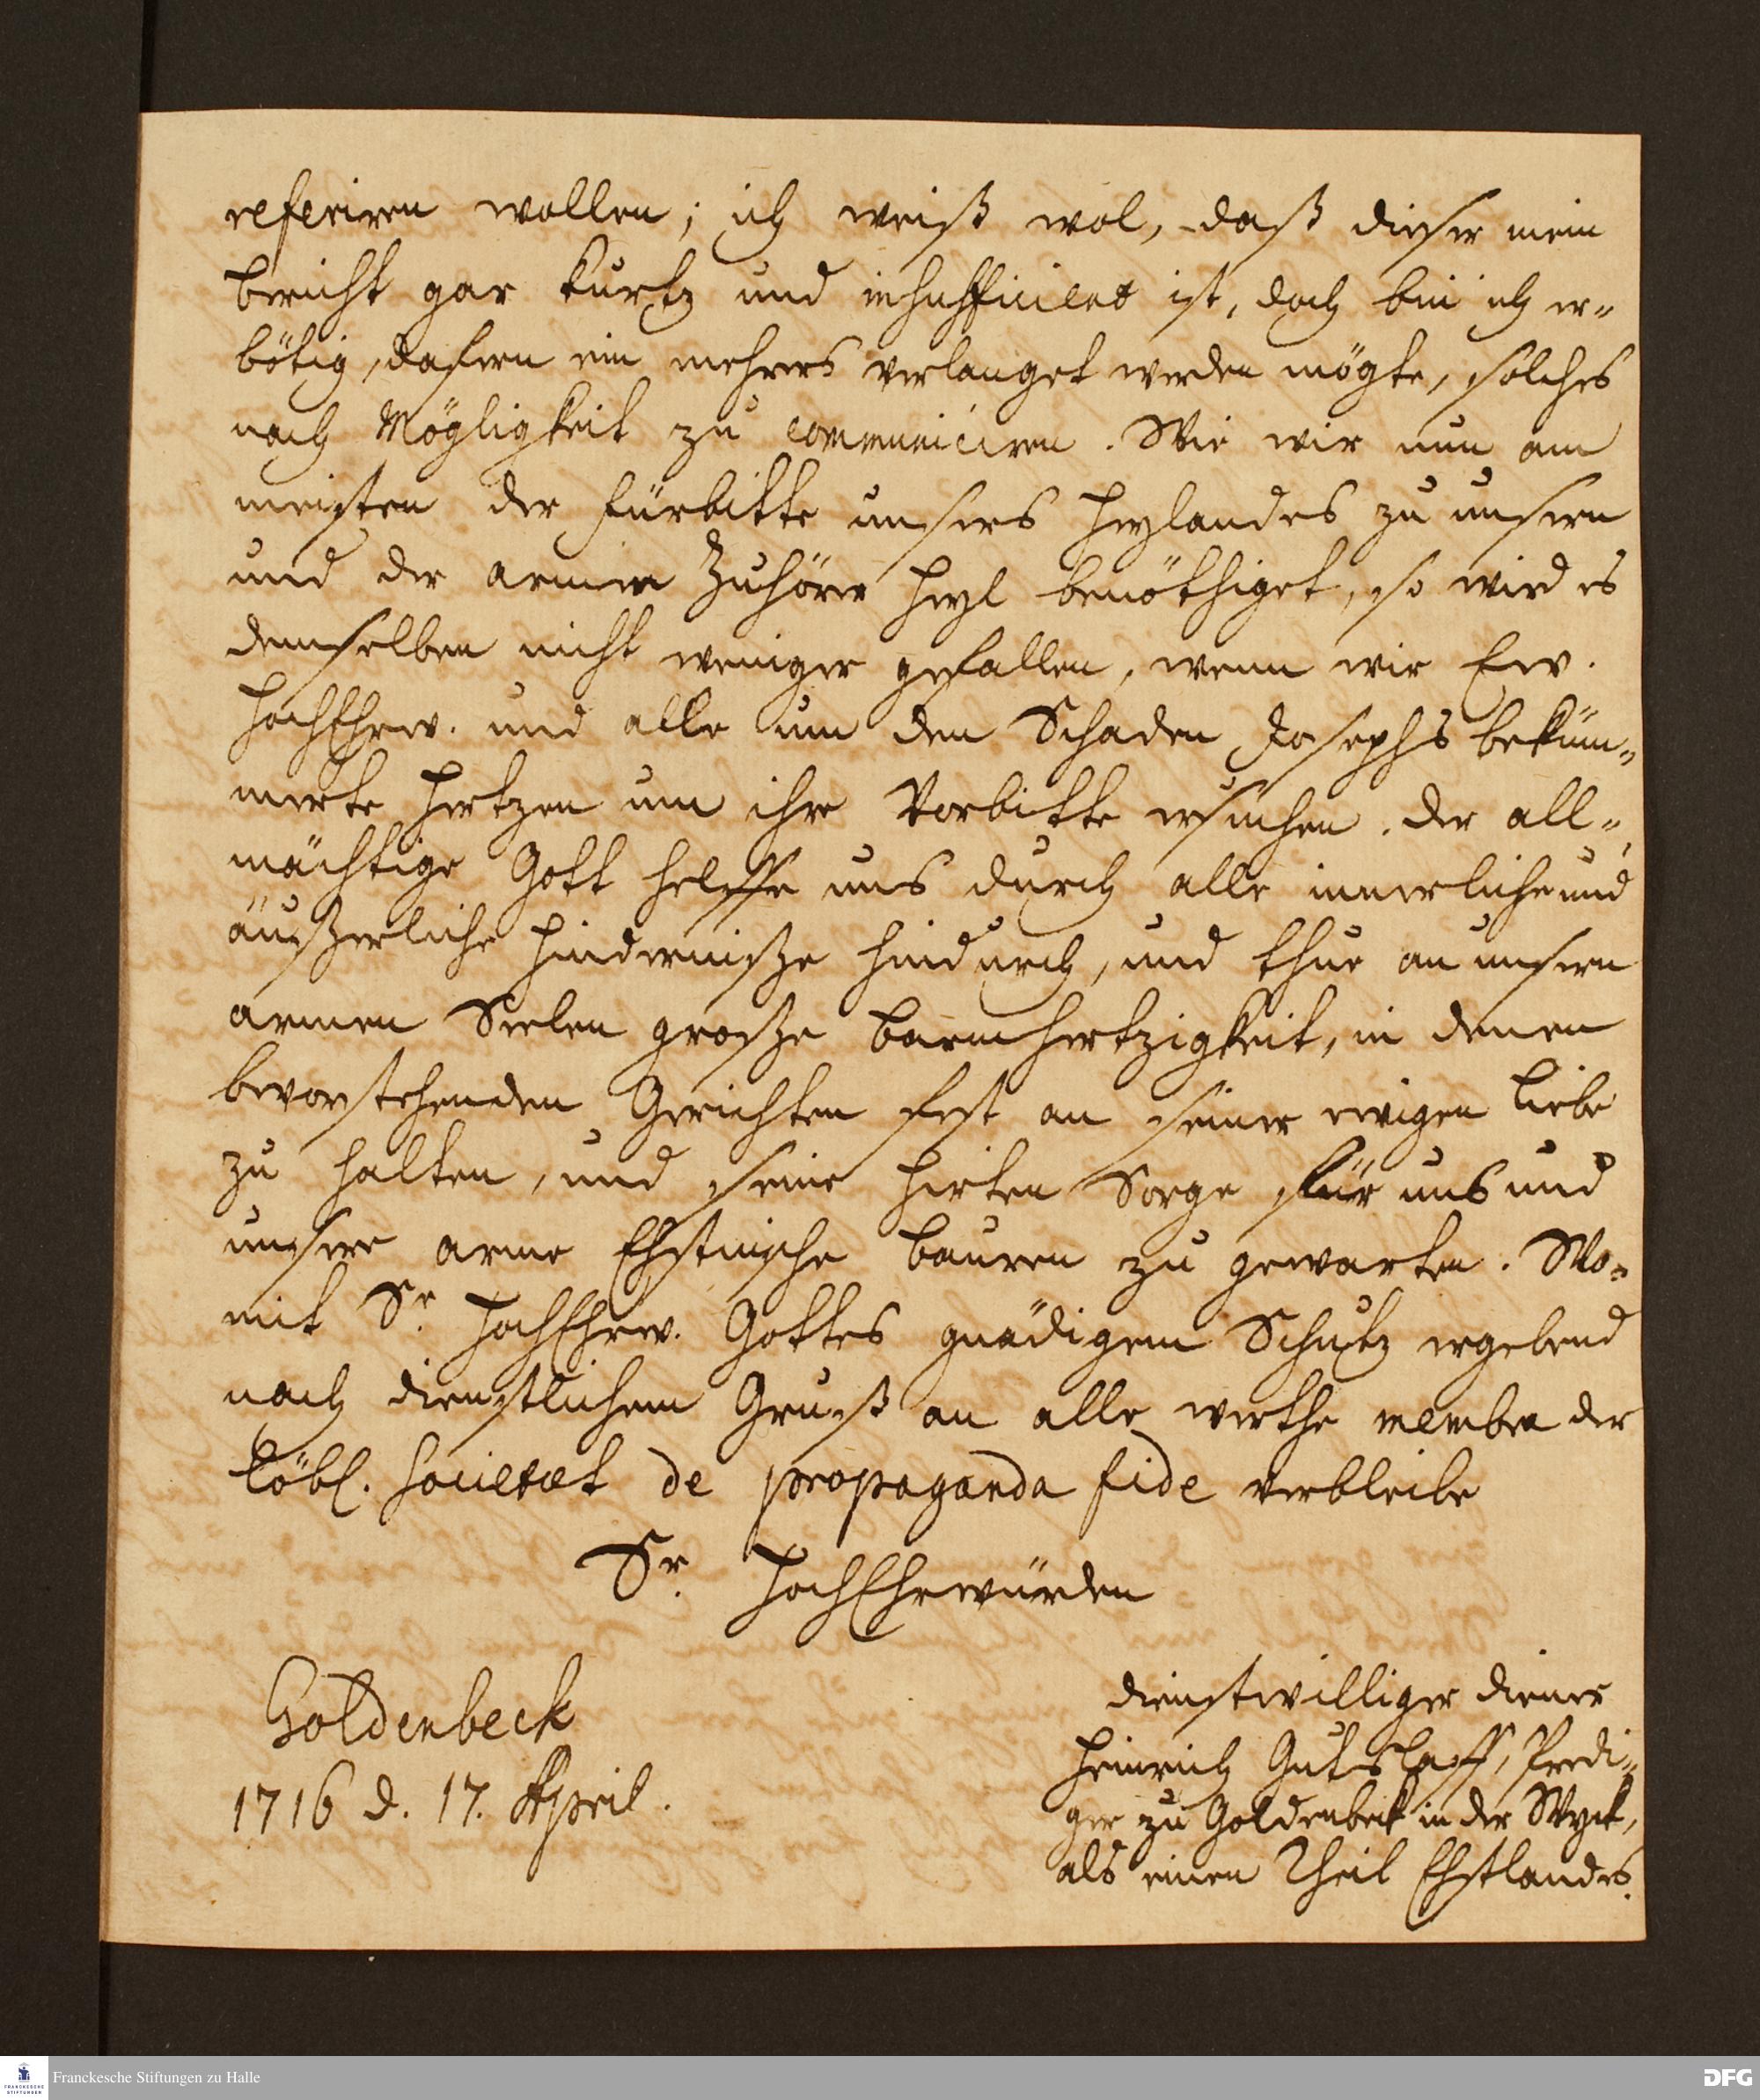 referiren wollen; ich weiß wol, daß dieser mein
bericht gar kurtz und insufficient ist, doch bin ich er-
bötig, dafern ein mehrers verlanget werden mögte, solches
nach Mögligkeit zu communiciren. Wie wir nun am
meisten der Fürbitte unsers Heylandes zu unsern
und der armen Zuhörer Heyl benöthiget, so wird es
demselben nicht weniger gefallen, wenn wir Ew.
HochEhrw. und alle um den Schaden Josephs beküm-
merte Hertzen um ihre Vorbitte ersuchen. Der all-
mächtige Gott helffe uns durch alle innerliche und
äuszerliche Hindernisze hindurch, und thue an unsern
armen Seelen grosze barmhertzigkeit, in denen
bevorstehenden Gerichten fest an seiner ewigen Liebe
zu halten, und seine Hirten Sorge für uns und
unsere arme Ehstnische bauren zu gewarten. Wo-
mit Sr. HochEhrw. Gottes gnädigem Schutz ergebend
nach dienstlichem Gruß an alle werthe membra der
Löbl. Societæt de propaganda fide verbleibe
Sr. HochEhrwürden
Goldenbeck
1716 d. 17. April.
dienstwilliger diener
Heinrich Gutslaff, Predi-
ger zu Goldenbeck in der Wyck,
als einen Theil Ehstlandes.
Franckesche Stiftungen zu Halle
FRANCKESCHE
STIFTUNGEN
DFG